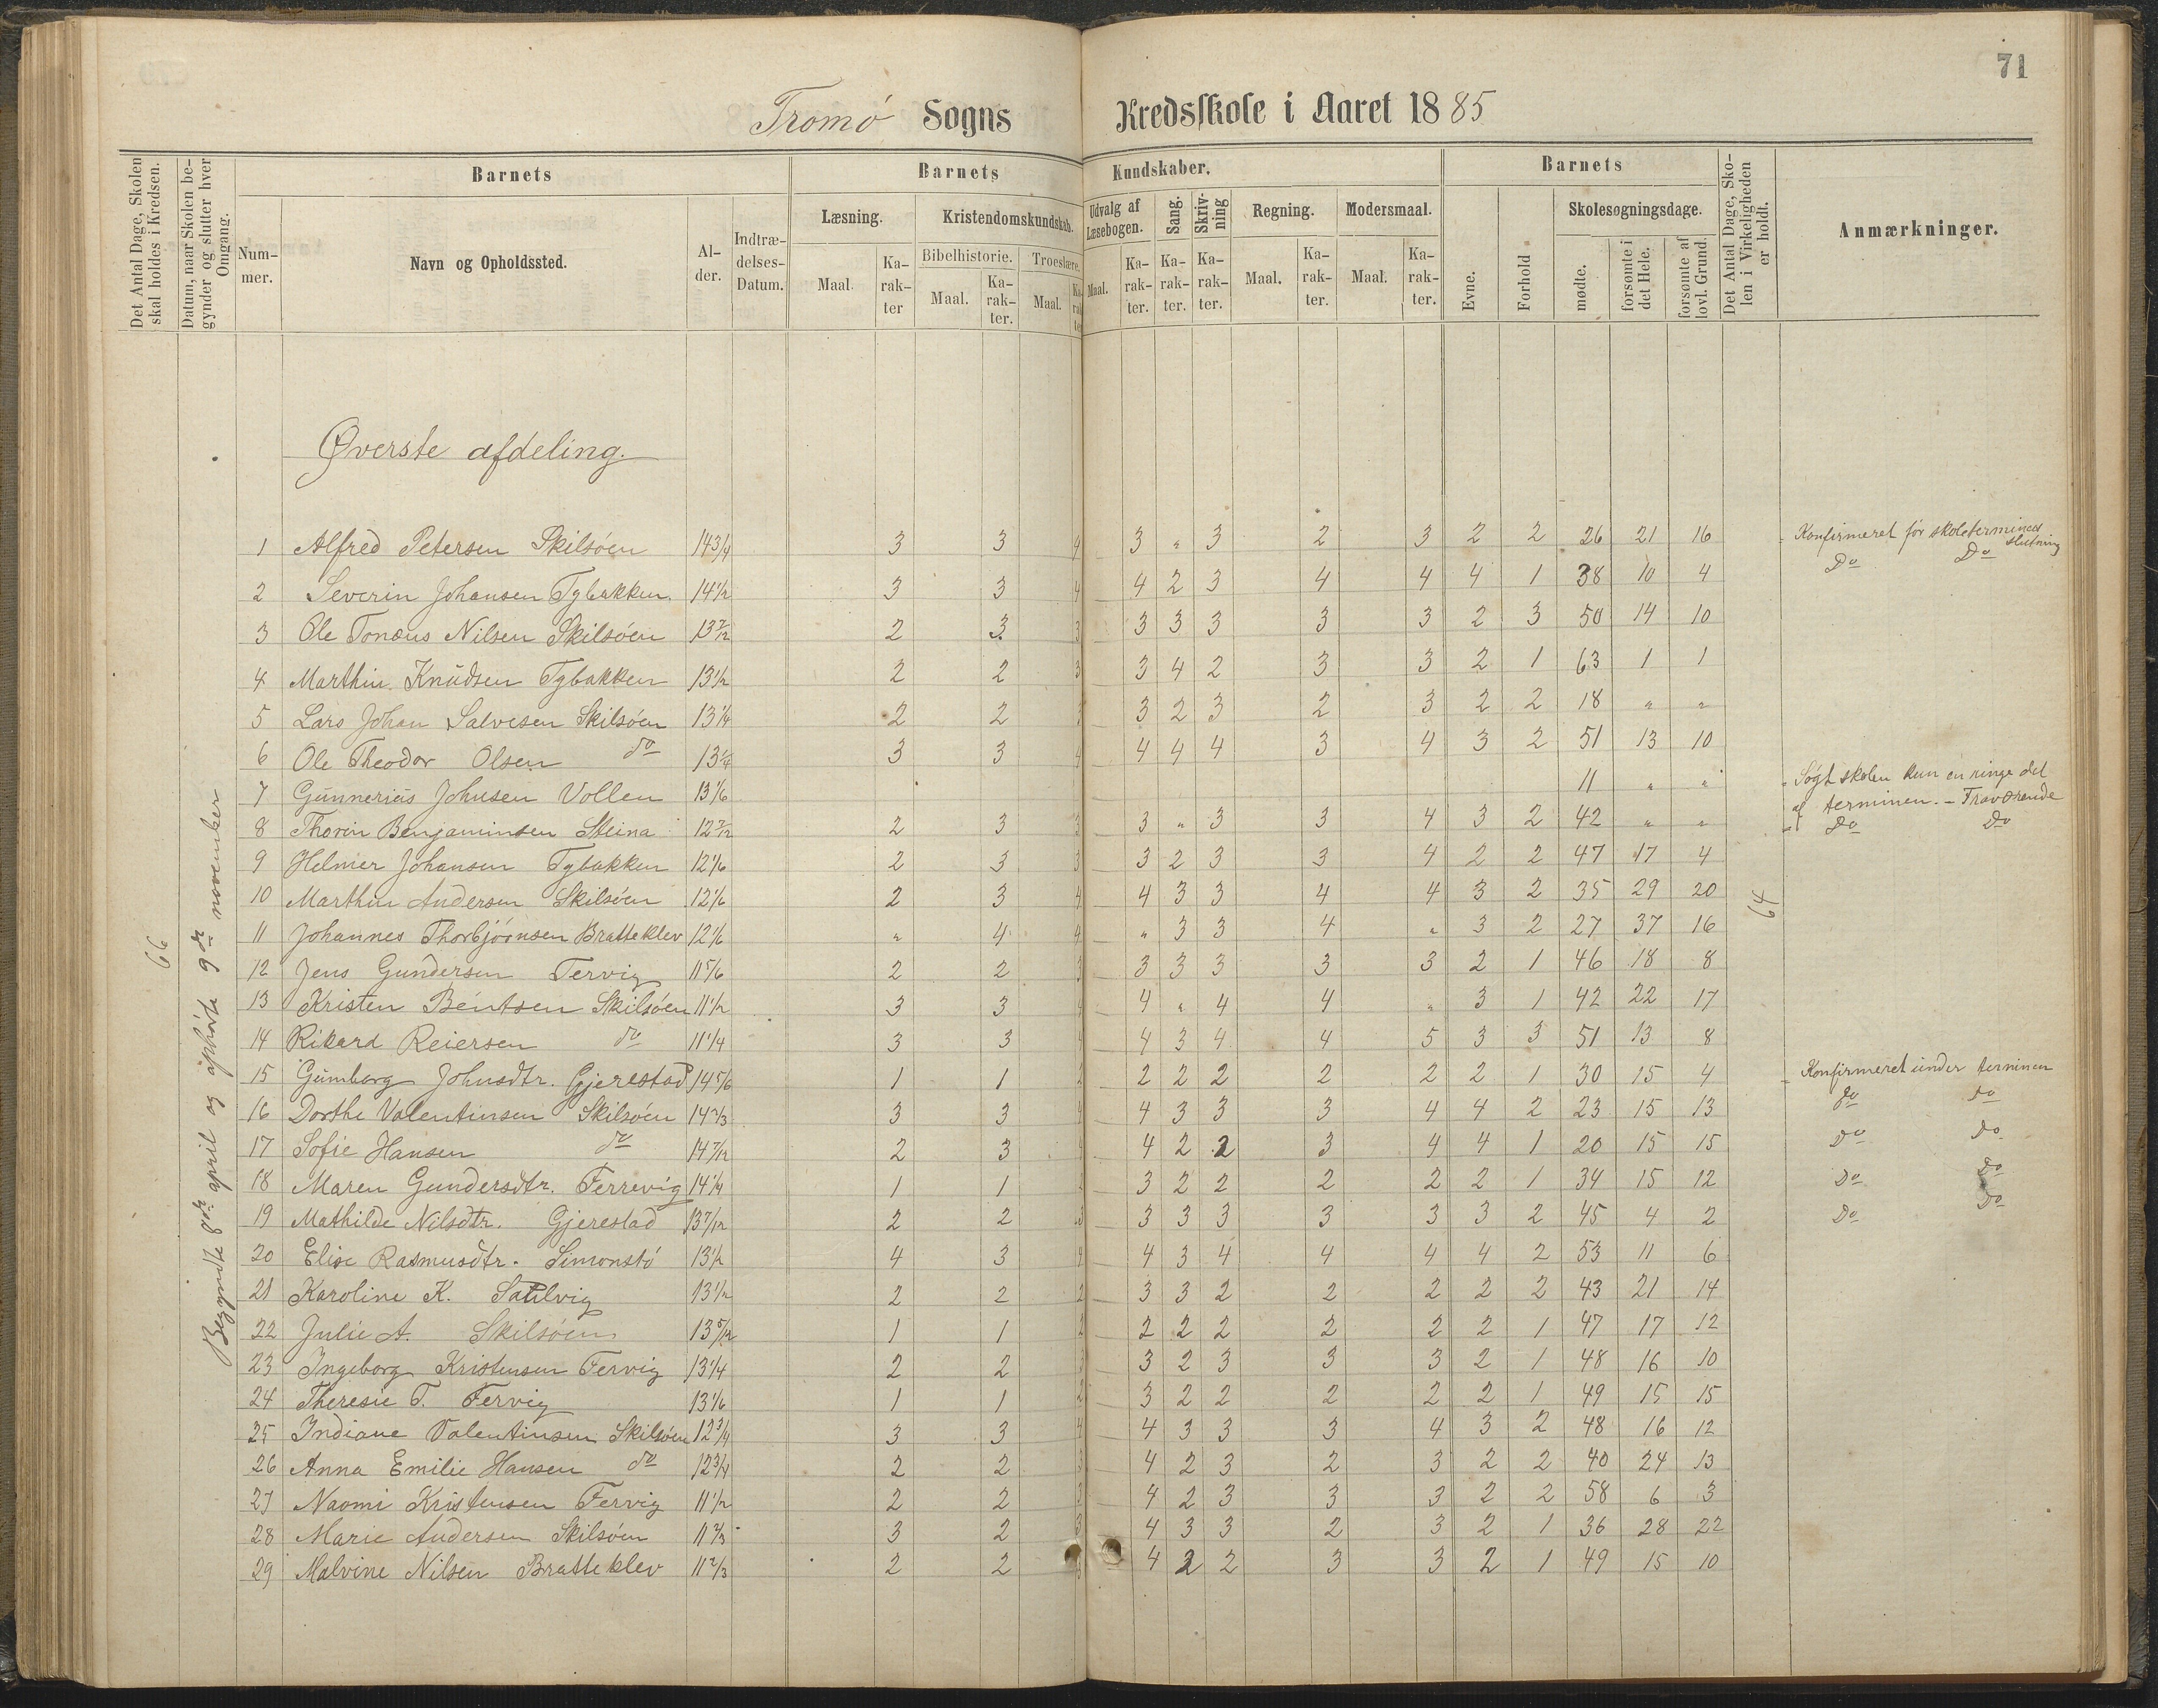 71
Tromö Sogns Kredsskole i Aaret 1885
Det Antal Dage, Skolen skal holdes i Kredsen.
Datum, naar Skolen begynder og slutter hver Omgang.
Barnets
Barnets Kundskaber.
Barnets
Det Antal Dage, Skolen i Virkeligheden er holdt.
Anmærkninger.
Nummer.
Navn og Opholdssted.
Alder.
Indtrædelses-Datum.
Læsning.
Kristendomskundskab.
Udvalg af Læsebogen.
Sang.
Skrivning
Regning.
Modersmaal.
Evne.
Forhold
Skolesøgningsdage.
Bibelhistorie.
Troeslære.
Maal. Karakter Maal. Karakter. Maal. Karakter Maal. Karakter. Karakter. Karakter. Maal. Karakter. Maal. Karakter.
møde.
forsømte i det Hele.
forsømte af lovl. Grund.
Øverste afdeling.
66
Begyndte 8de april og ophörte 9de november
64
1 Alfred Petersen Skilsöen 14 3/4 3 3 4 3 " 3 2 3 2 2 26 21 16 Konfirmeret för skoleterminens slutning
2 Severin Johansen Tybakken 14 1/2 3 3 4 4 2 3 4 4 4 1 38 10 4 Do Do
3 Ole Tonæus Nilsen Skilsöen 13 7/12 2 3 3 3 3 3 3 3 2 3 50 14 10
4 Marthin Knudsen Tybakken 13 1/2 2 2 3 3 4 2 3 3 2 1 63 1 1
5 Lars Johan Salvesen Skilsöen 13 1/4 2 2 3 3 2 3 2 3 2 2 18 " "
6 Ole Theodor Olsen do 13 1/4 3 3 4 4 4 4 3 4 3 2 51 13 10
7 Gunnerius Johnsen Vollen 13 1/6 11 " " Søgt skolen kun en ringe del af terminen. - Fraværende
8 Thorvin Benjaminsen Steina 12 7/12 2 3 3 3 " 3 3 4 3 2 42 " " Do Do
9 Helmer Johansen Tybakken 12 1/6 2 3 3 3 2 3 3 4 2 2 47 17 4
10 Marthin Andersen Skilsöen 12 1/6 2 3 4 4 3 3 4 4 3 2 35 29 20
11 Johannes Thorbjörnsen Bratteklev 12 1/6 " 4 4 " 3 3 4 " 3 2 27 37 16
12 Jens Gundersen Tervig 11 5/6 2 2 3 3 3 3 3 3 2 1 46 18 8
13 Kristen Bentsen Skilsöen 11 1/2 3 3 4 4 " 4 4 " 3 1 42 22 17
14 Rikard Reiersen do 11 1/4 3 3 4 4 3 4 4 5 3 3 51 13 8
15 Gumborg Johnsdtr. Gjerestad 14 5/6 1 1 2 2 2 2 2 2 2 1 30 15 4 Konfirmeret under terminen
16 Dorthe Valentinsen Skilsöen 14 2/3 3 3 4 4 3 3 3 4 4 2 23 15 13 do do
17 Sofie Hansen do 14 7/12 2 3 4 4 2 2 3 4 4 1 20 15 15 Do Do
18 Maren Gundersdtr. Ferrevig 14 1/4 1 1 3 2 2 2 2 2 1 34 15 12 Do Do
19 Mathilde Nilsdtr. Gjerestad 13 7/12 2 2 3 3 3 3 3 3 3 2 45 4 2 Do Do
20 Elise Rasmusdtr. Simonstö 13 1/2 4 3 4 4 3 4 4 4 4 2 53 11 6
21 Karoline K. Sandvig 13 1/2 2 2 2 3 3 2 2 2 2 2 43 21 14
22 Julie A. Skilsöen 13 5/12 1 1 2 2 2 2 2 2 2 1 47 17 12
23 Ingeborg Kristensen Fervig 13 1/4 2 2 3 3 2 3 3 3 2 1 48 16 10
24 Theresie T. Fervig 13 1/6 1 1 2 3 2 2 2 2 2 1 49 15 15
25 Indiane Valentinsen Skilsöen 12 3/4 3 3 4 4 3 3 3 4 3 2 48 16 12
26 Anna Emilie Hansen do 12 3/4 2 2 3 4 2 3 2 3 2 2 40 24 13
27 Naomi Kristensen Fervig 11 1/2 2 2 3 4 2 3 3 3 2 2 58 6 3
28 Marie Andersen Skilsöen 11 2/3 3 2 3 4 3 3 2 3 2 1 36 28 22
29 Malvine Nilsen Bratteklev 11 2/3 2 2 3 4 2 2 3 3 2 1 49 15 10